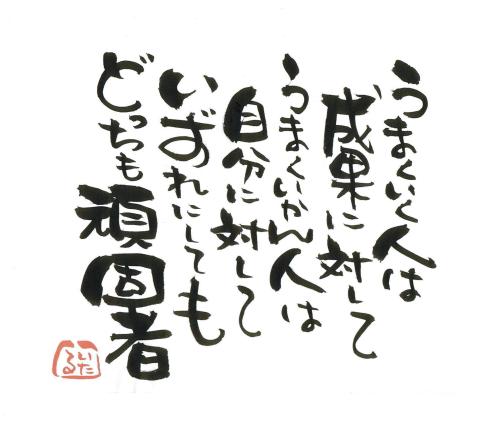 うまくいく人は
成果に対して
うまくいかん人は
自分に対して
いずれにしても
どっちも頑固者
いたる